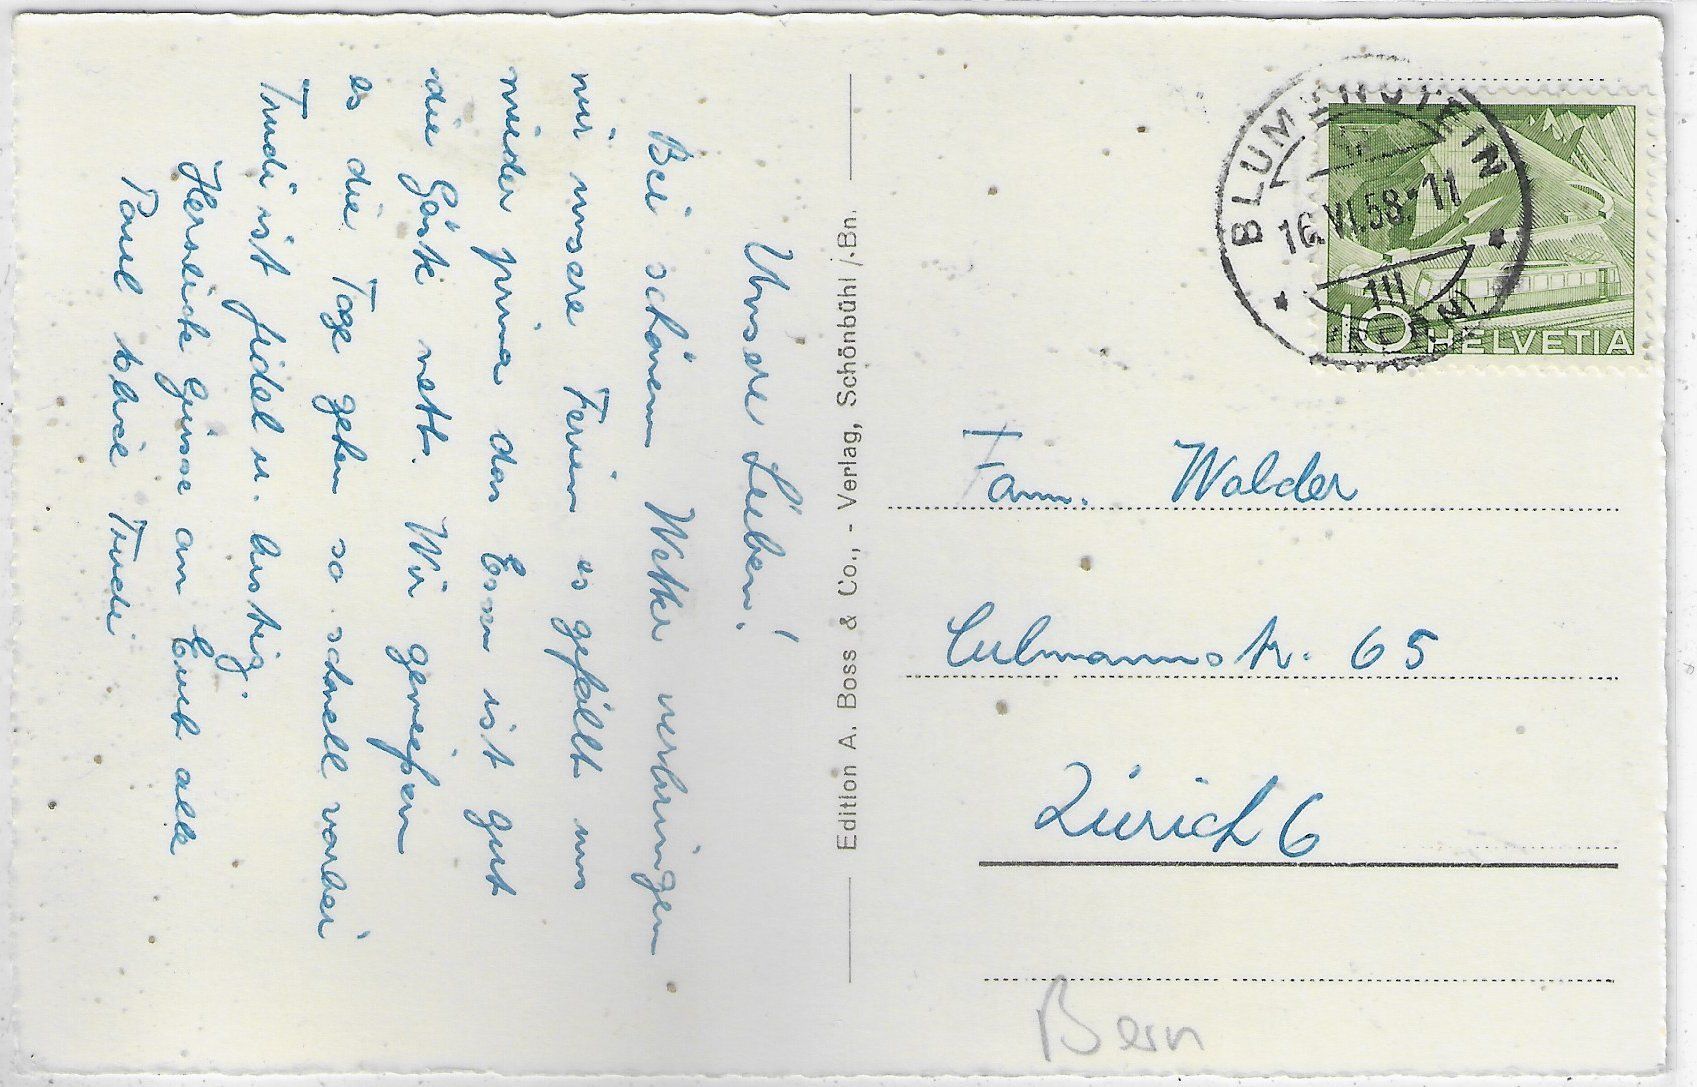 Unsere Lieben!
Bei schönem Wetter verbringen
wir unsere Ferien es gefällt uns
wieder prima das Essen ist gut
die Gäste nett. Wir geniessen
es die Tage gehen so schnell vorbei
Trudi ist fidel u. lustig.
Herzliche Grüsse an Euch alle
Paul Trudi
Edition A. Boss & Co., - Verlag, Schönbühl/Bn.
BLUMENSTEIN
16.VI.58.-11
III
10 HELVETIA
Fam. Walder
Culmannstr. 65
Zürich 6
Bern